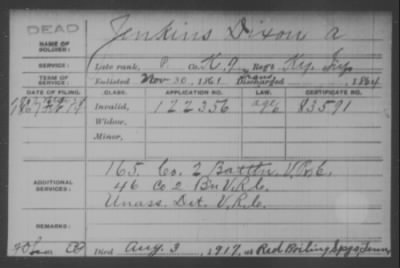 DEAD
NAME OF SOLDIER: Jenkins Dixon a
SERVICE: Late rank, P. Co. K, 9 Reg't Ky. Inf
TERM OF SERVICE: Enlisted Nov 30, 1861 Trans. Discharged , 1864
DATE OF FILING. CLASS. APPLICATION NO. LAW. CERTIFICATE NO.
Invalid, 122356 age 83591
Widow,
Minor,
ADDITIONAL SERVICES: 165. Co. 2 Battln. V.R.C.
46 Co 2 Bn V.R.C.
Unass. Det. V.R.C.
REMARKS:
Died Aug. 3, 1917, at Red Boiling Spgs Tenn